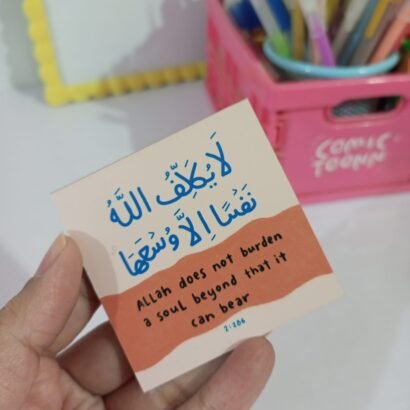 لَا يُكَلِّفُ اللَّهُ
نَفْسًا إِلَّا وُسْعَهَا
ALLah does not burden
a souL beyond that it
can bear
2:286
COMIC
TOONN